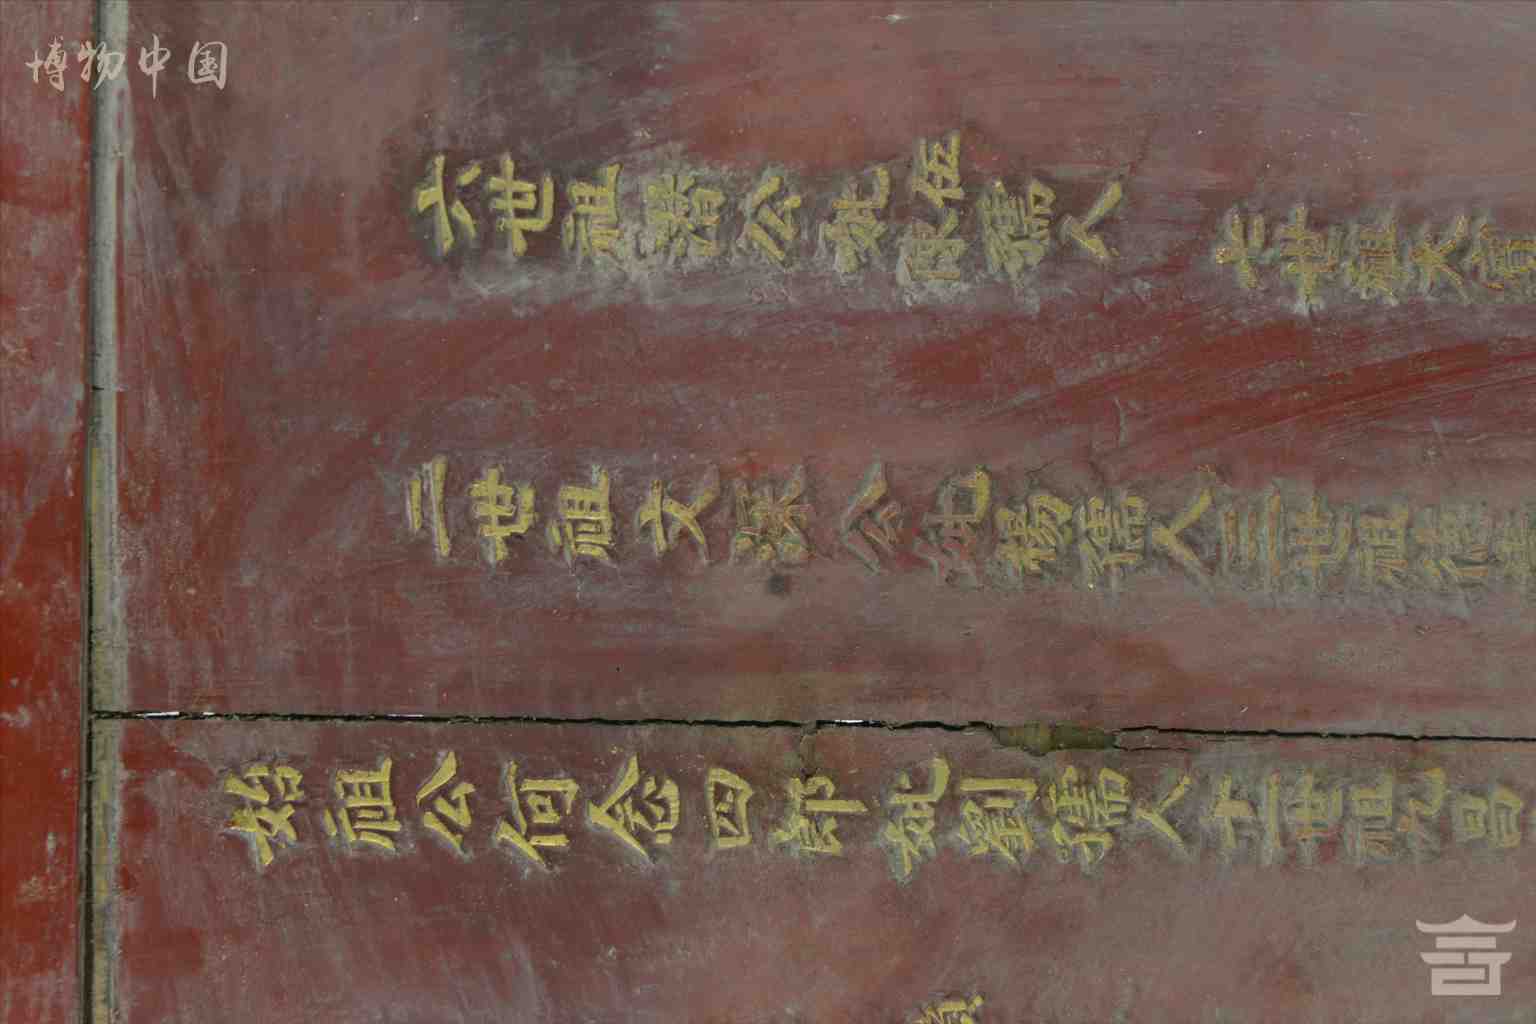 博物中国
六世祖潛公妣伍陳孺人 七世祖天
二世祖文深公妣楊孺人三世祖德
始祖公何念四郎妣劉孺人十一世祖允昌